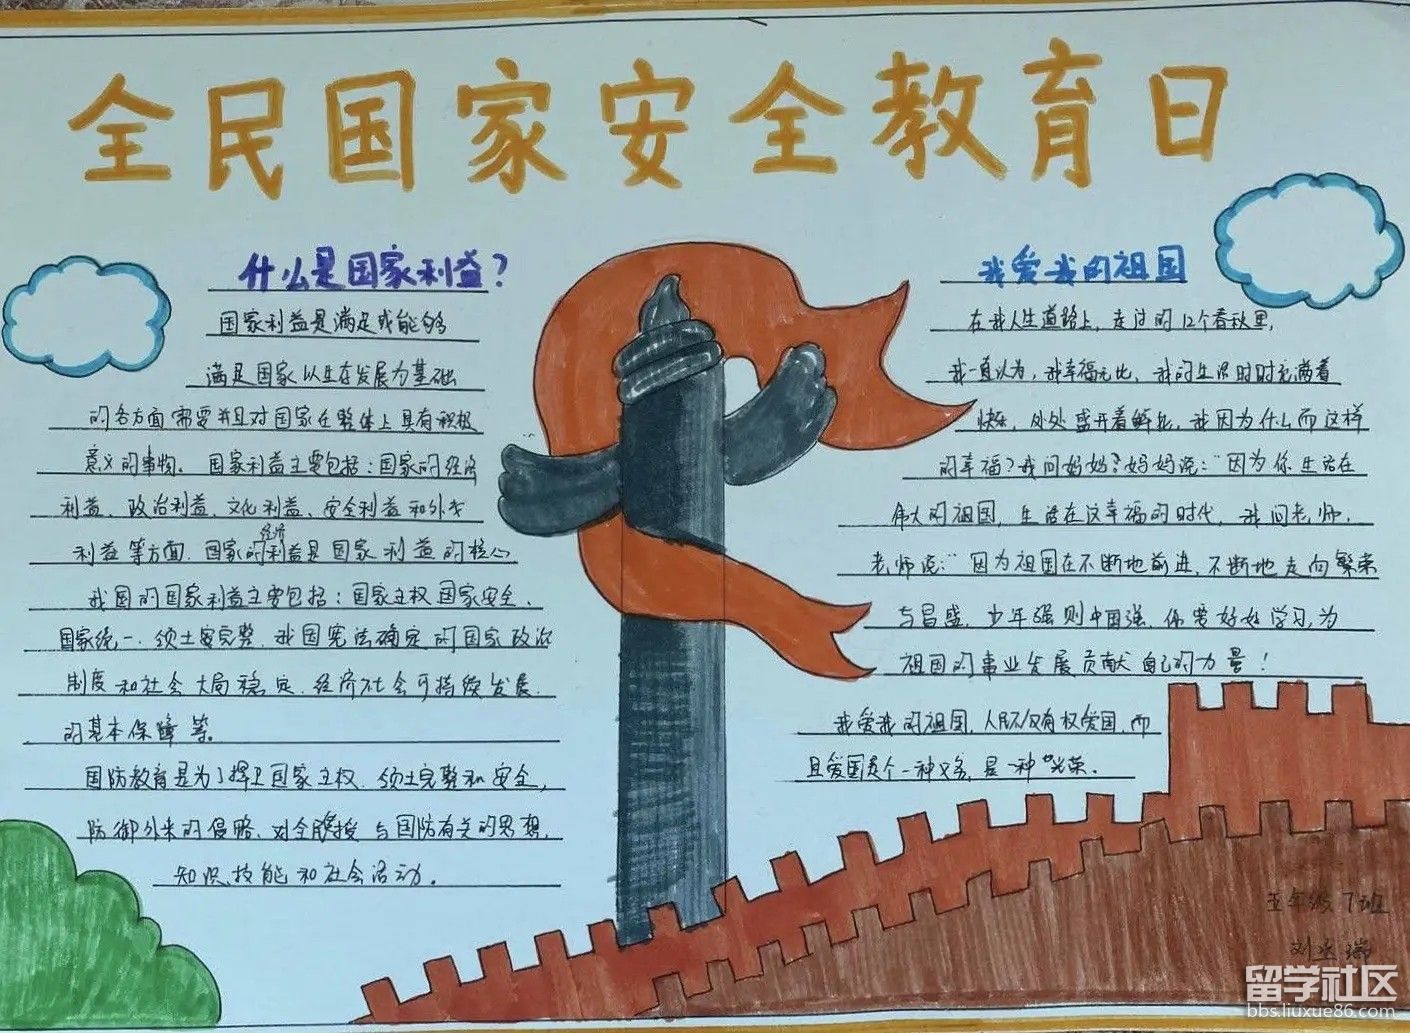 全民国家安全教育日
什么是国家利益？
国家利益是满足或能够
满足国家以生存发展为基础
的各方面需要并且对国家在整体上具有积极
意义的事物。国家利益主要包括：国家的经济
利益、政治利益、文化利益、安全利益和外我
利益等方面．国家的经济利益是国家利益的核心
我国的国家利益主要包括：国家主权国家安全、
国家统一．领土安完整．我国宪法确定的国家政治
制度和社会大局稳定．经济社会可持续发展．
的基本保障等。
国防教育是为了捍卫国家主权．领土完整和安全，
防御外来的侵略．对全民授与国防有关的思想．
知识、技能和社会活动。
我爱我的祖国
在我人生道路上，走过的12个春秋里，
我一直认为，我幸福无比，我的生活时时充满着
快乐，处处盛开着鲜花，我因为什么而这样
的幸福？我问妈妈？妈妈说：“因为你生活在
伟大的祖国，生活在这幸福的时代，我问老师．
老师说：“因为祖国在不断地前进，不断地走向繁荣
与昌盛，少年强则中国强，你要好好学习，为
祖国的事业发展贡献自己的力量！
我爱我的祖国，人民不仅有权爱国，而
且爱国是个一种义务，是一种“光荣．
五年级7班
刘 瑞
留学社区
bbs.liuxue86.com